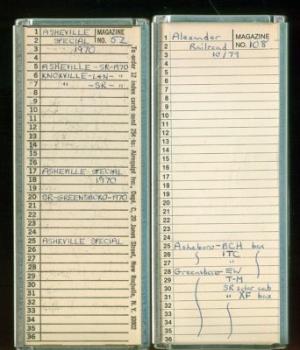 1 ASHEVILLE MAGAZINE
2 SPECIAL NO. 52
3 1970
4
5 ASHEVILLE - SR-1970
6 KNOXVILLE - L&N - "
7 " -SR - "
8
9
10
11
12
13
14
15
16
17 ASHEVILLE SPECIAL
18 1970
19
20 SR-GREENSBORO-1970
21
22
23
24
25 ASHEVILLE SPECIAL
26
27
28
29
30
31
32
33
34
35
36
To order 12 index cards send 25¢ to: Airequipt Inc., Dept. C, 20 Jones Street, New Rochelle, N.Y. 10802
1 Alexander MAGAZINE
2 Railroad NO. 108
3 10/79
4
5
6
7
8
9
10
11
12
13
14
15
16
17
18
19
20
21
22
23
24
25 Asheboro - BCH box
26 ITC "
27 "
28 Greensboro EW
29 T-M
30 SR solar cab
31 " XF box
32
33
34
35
36